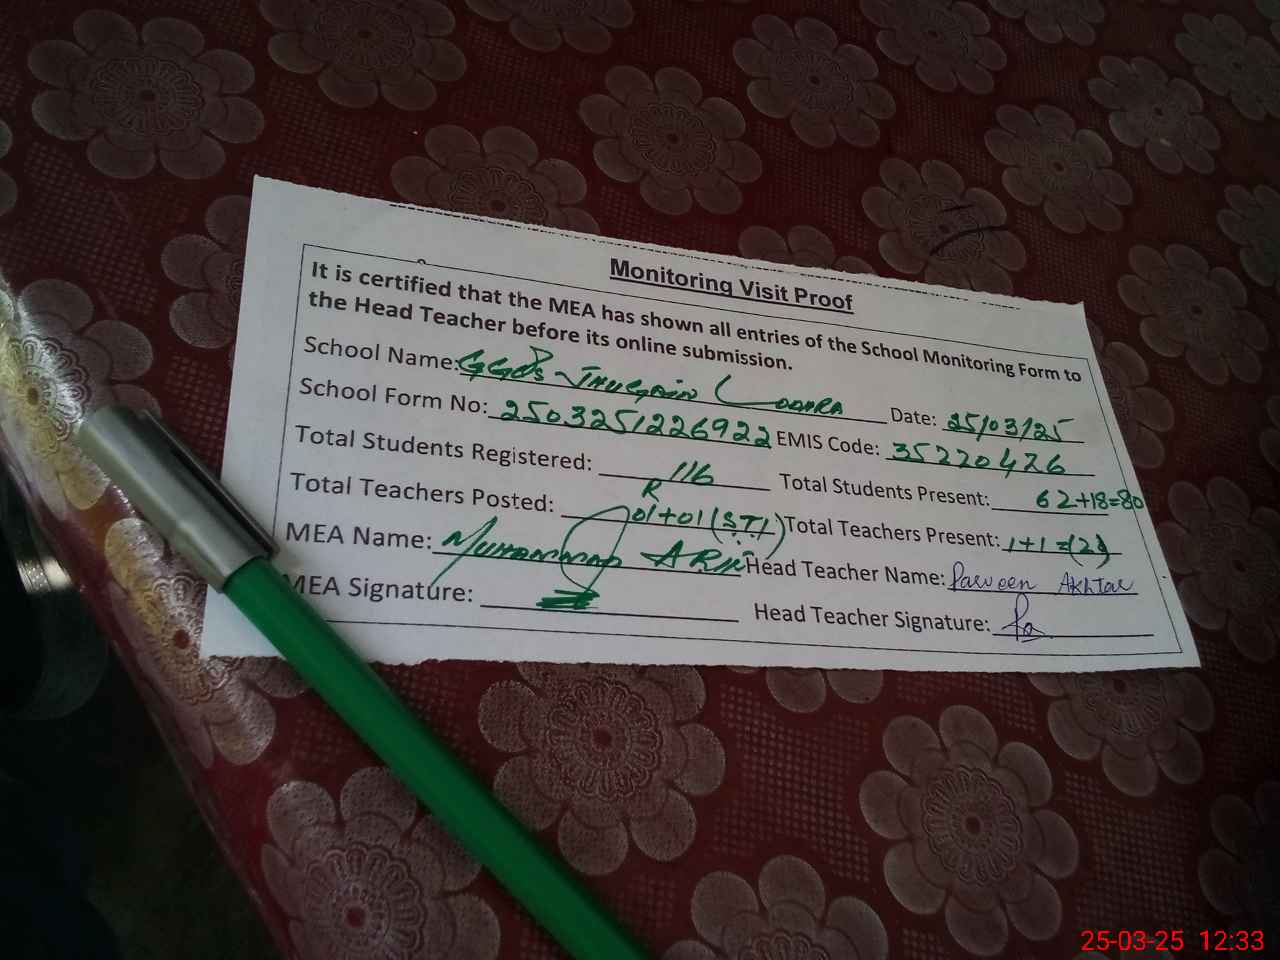 Monitoring Visit Proof
It is certified that the MEA has shown all entries of the School Monitoring Form to
the Head Teacher before its online submission.
School Name: GGPS Jhugain Lodhra Date: 25/03/25
School Form No: 2503251226922 EMIS Code: 35220476
Total Students Registered: 116 Total Students Present: 62+18=80
Total Teachers Posted: R 01+01 (STI) Total Teachers Present: 1+1=(2)
MEA Name: Muhammad Head Teacher Name: Parveen Akhtar
MEA Signature: Head Teacher Signature:
25-03-25 12:33